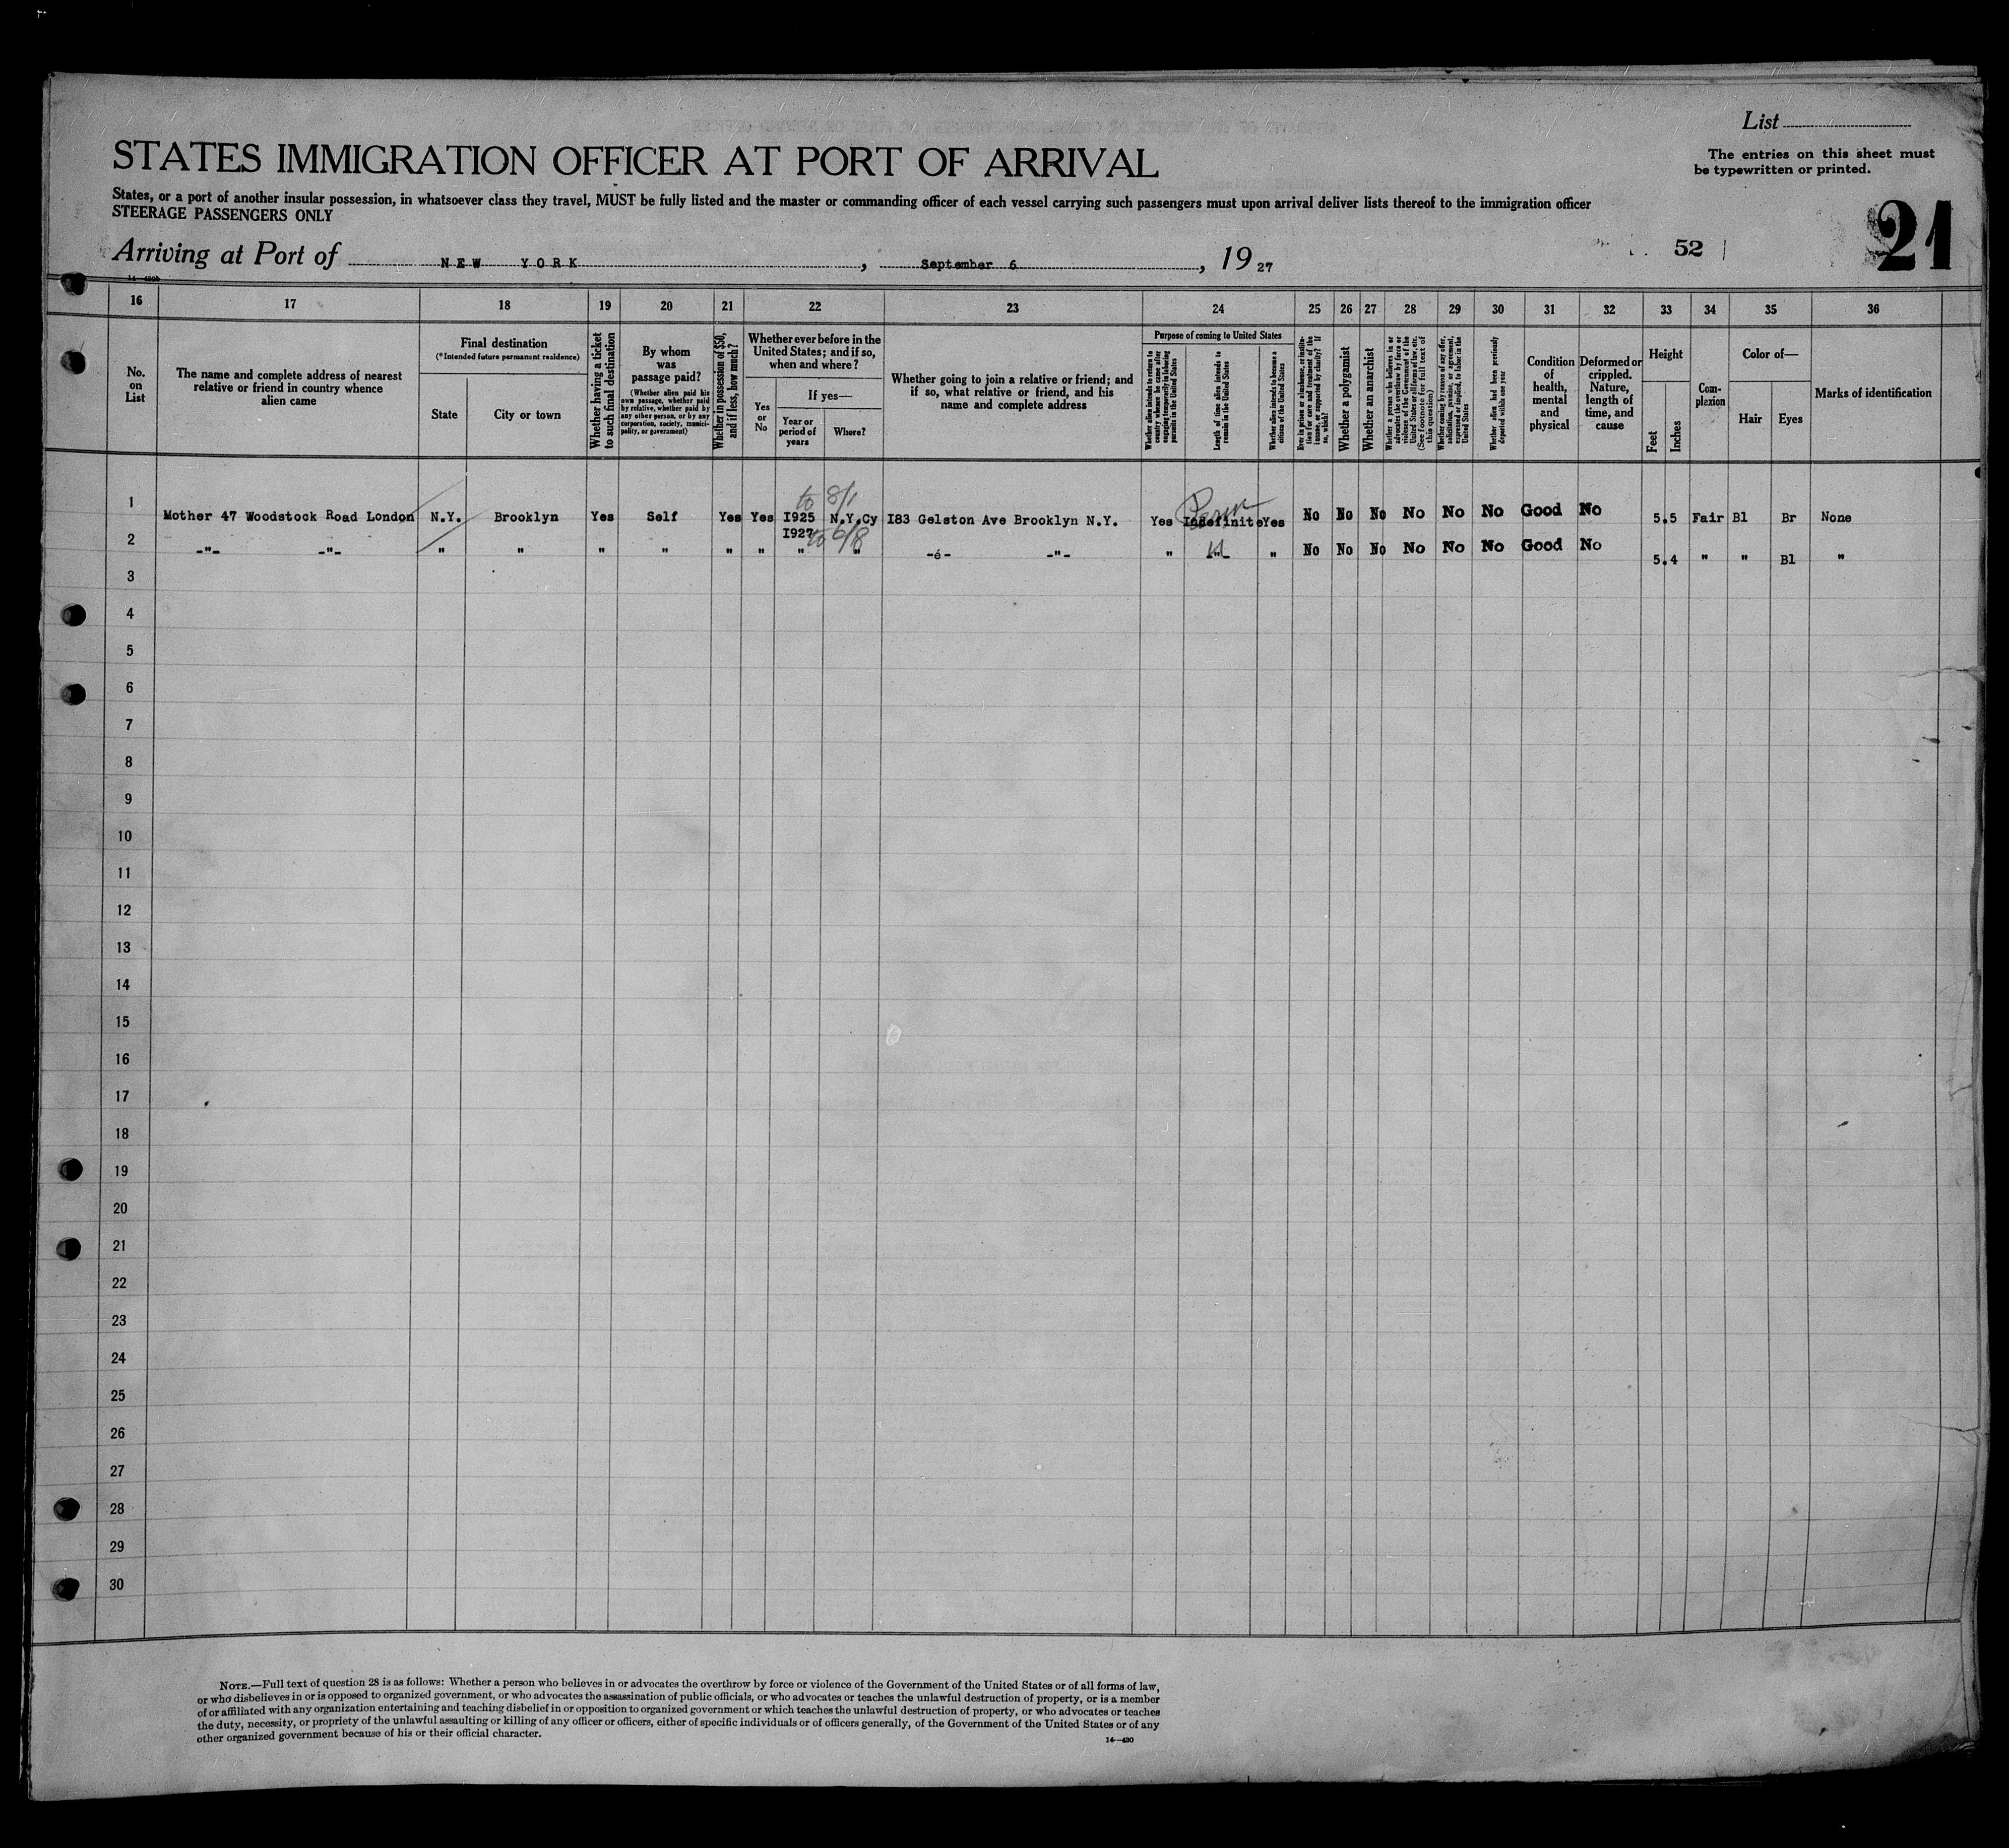 List
The entries on this sheet must
be typewritten or printed.
STATES IMMIGRATION OFFICER AT PORT OF ARRIVAL
States, or a port of another insular possession, in whatsoever class they travel, MUST be fully listed and the master or commanding officer of each vessel carrying such passengers must upon arrival deliver lists thereof to the immigration officer
STEERAGE PASSENGERS ONLY
21
52
Arriving at Port of NEW YORK, September 6, 1927
16 17 18 19 20 21 22 23 24 25 26 27 28 29 30 31 32 33 34 35 36
No.
on
List
The name and complete address of nearest
relative or friend in country whence
alien came
Final destination
(*Intended future permanent residence)
State
City or town
Whether having a ticket
to such final destination
By whom
was
passage paid?
(Whether alien paid his
own passage, whether paid
by relative, whether paid by
any other person, or by any
corporation, society, munici-
pality, or government)
Whether in possession of $50,
and if less, how much?
Whether ever before in the
United States; and if so,
when and where?
Yes
or
No
If yes—
Year or
period of
years
Where?
Whether going to join a relative or friend; and
if so, what relative or friend, and his
name and complete address
Purpose of coming to United States
Whether alien intends to return to
country whence he came after
engaging temporarily in laboring
pursuits in the United States
Length of time alien intends to
remain in the United States
Whether alien intends to become a
citizen of the United States
Ever in prison or almshouse, or institu-
tion for care and treatment of the
insane, or supported by charity? If
so, which?
Whether a polygamist
Whether an anarchist
Whether a person who believes in or
advocates the overthrow by force or
violence of the Government of the
United States or all forms of law, etc.
(See footnote for full text of
this question)
Whether coming by reason of any offer,
solicitation, promise, or agreement,
expressed or implied, to labor in the
United States
Whether alien had been previously
deported within one year
Condition
of
health,
mental
and
physical
Deformed or
crippled.
Nature,
length of
time, and
cause
Height
Feet
Inches
Com-
plexion
Color of—
Hair
Eyes
Marks of identification
to 8/1
1 Mother 47 Woodstock Road London N.Y. Brooklyn Yes Self Yes Yes I925 N.Y.Cy I83 Gelston Ave Brooklyn N.Y. Yes Indefinite Yes No No No No No No Good No 5.5 Fair Bl Br None
I927 to 6/8
2 -"- -"- " " " " " " " " -é- -"- " -"- " No No No No No No Good No 5.4 " " Bl "
3
4
5
6
7
8
9
10
11
12
13
14
15
16
17
18
19
20
21
22
23
24
25
26
27
28
29
30
NOTE.—Full text of question 28 is as follows: Whether a person who believes in or advocates the overthrow by force or violence of the Government of the United States or of all forms of law,
or who disbelieves in or is opposed to organized government, or who advocates the assassination of public officials, or who advocates or teaches the unlawful destruction of property, or is a member
of or affiliated with any organization entertaining and teaching disbelief in or opposition to organized government or which teaches the unlawful destruction of property, or who advocates or teaches
the duty, necessity, or propriety of the unlawful assaulting or killing of any officer or officers, either of specific individuals or of officers generally, of the Government of the United States or of any
other organized government because of his or their official character.
14—430